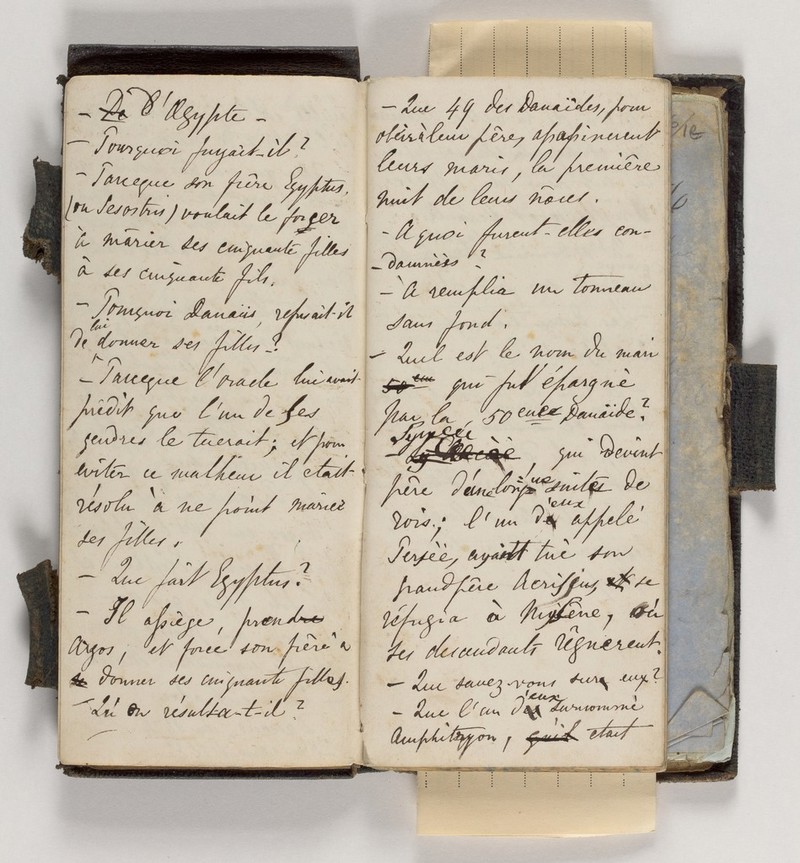 - D'Ægypte -
- Pourquoi fuyait-il ?
- Parceque son frère Egyptus.
(ou Sesostris) voulait le forcer
à marier ses cinquante filles
à ses cinquante fils.
- Pourquoi Danaüs, refusait-il
de lui donner ses filles - ?
- Parceque l'oracle lui avait
prédit que l'un de ses
gendres le tuerait ; et pour
éviter ce malheur il etait
résolu à ne point marier
ses filles.
- Que fait Egyptus ?
- Il assiège, prendre
Argos, et force son frère a
donner ses cinquante filles.
- Qu'en résulta-t-il ?
- Que 49 des Danaïdes, pour
obéir à leur père, assassinerent
leurs maris, la première
nuit de leurs nôces.
- A quoi furent-elles con-
- damnées ?
- A remplir un tonneau
sans fond.
- Quel est le nom du mari
50eme qui fut épargné
par la 50eme Danaïde ?
- Lyncée, qui devint
père d'une longue suite de
rois ; l'un d'eux appelé
Persée, ayant tué son
grandpère Acrisius, se
réfugia à Mycène, où
ses descendants règnerent.
- Que savez-vous sur eux ?
- Que l'un d'eux surnommé
Amphitryon, qu'il etait